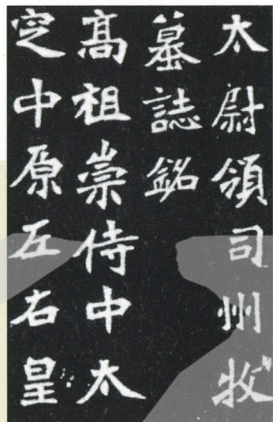 太尉領司州牧
墓誌銘
髙祖崇侍中太
定中原左右皇